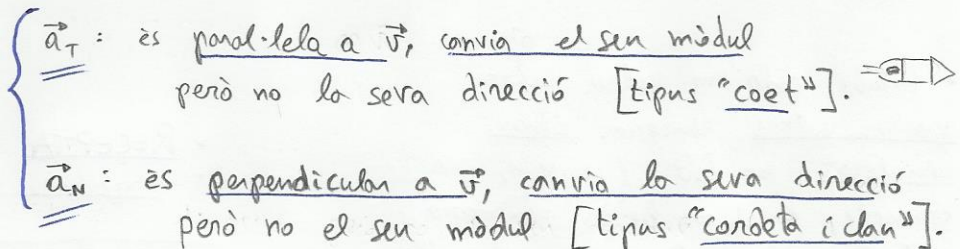 a⃗_T : és paral·lela a v⃗, canvia el seu mòdul
però no la seva direcció [tipus "coet"].
a⃗_N : és perpendicular a v⃗, canvia la seva direcció
però no el seu mòdul [tipus "cordeta i clau"].